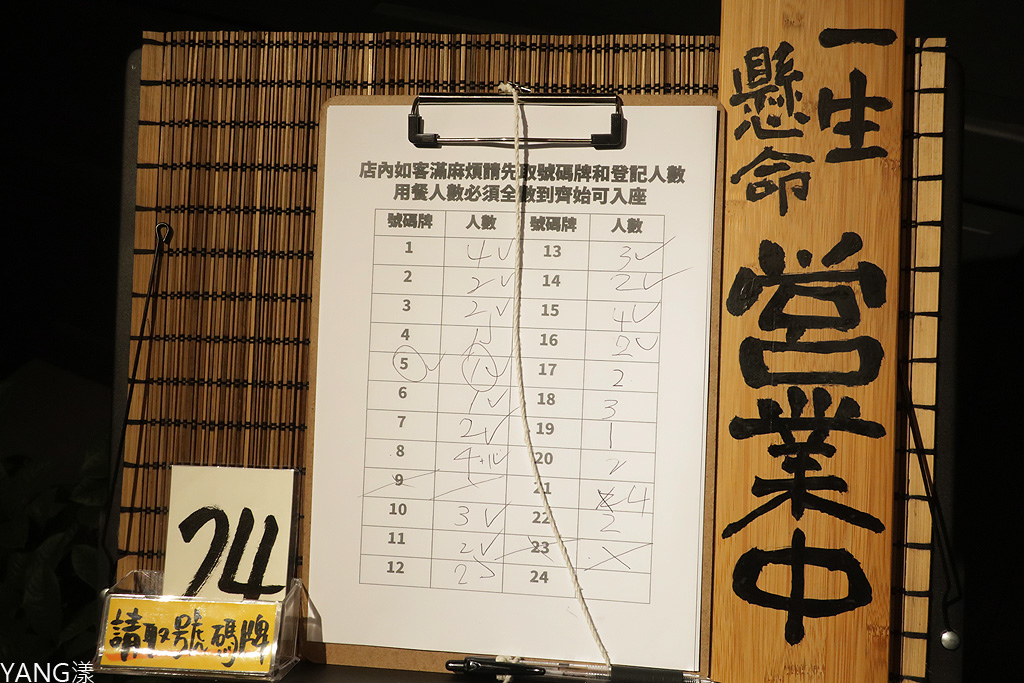 店內如客滿麻煩請先取號碼牌和登記人數
用餐人數必須全數到齊始可入座
號碼牌 人數 號碼牌 人數
1 4✓ 13 3✓
2 2✓ 14 2✓
3 2✓ 15 4✓
4 16 2✓
5✓ 1✓ 17 2
6 1✓ 18 3
7 2✓ 19 1
8 4+1✓ 20 2
9 21 4
10 3✓ 22 2
11 2✓ 23
12 2 24
一生
懸命
営業中
74
請取號碼牌
YANG漾